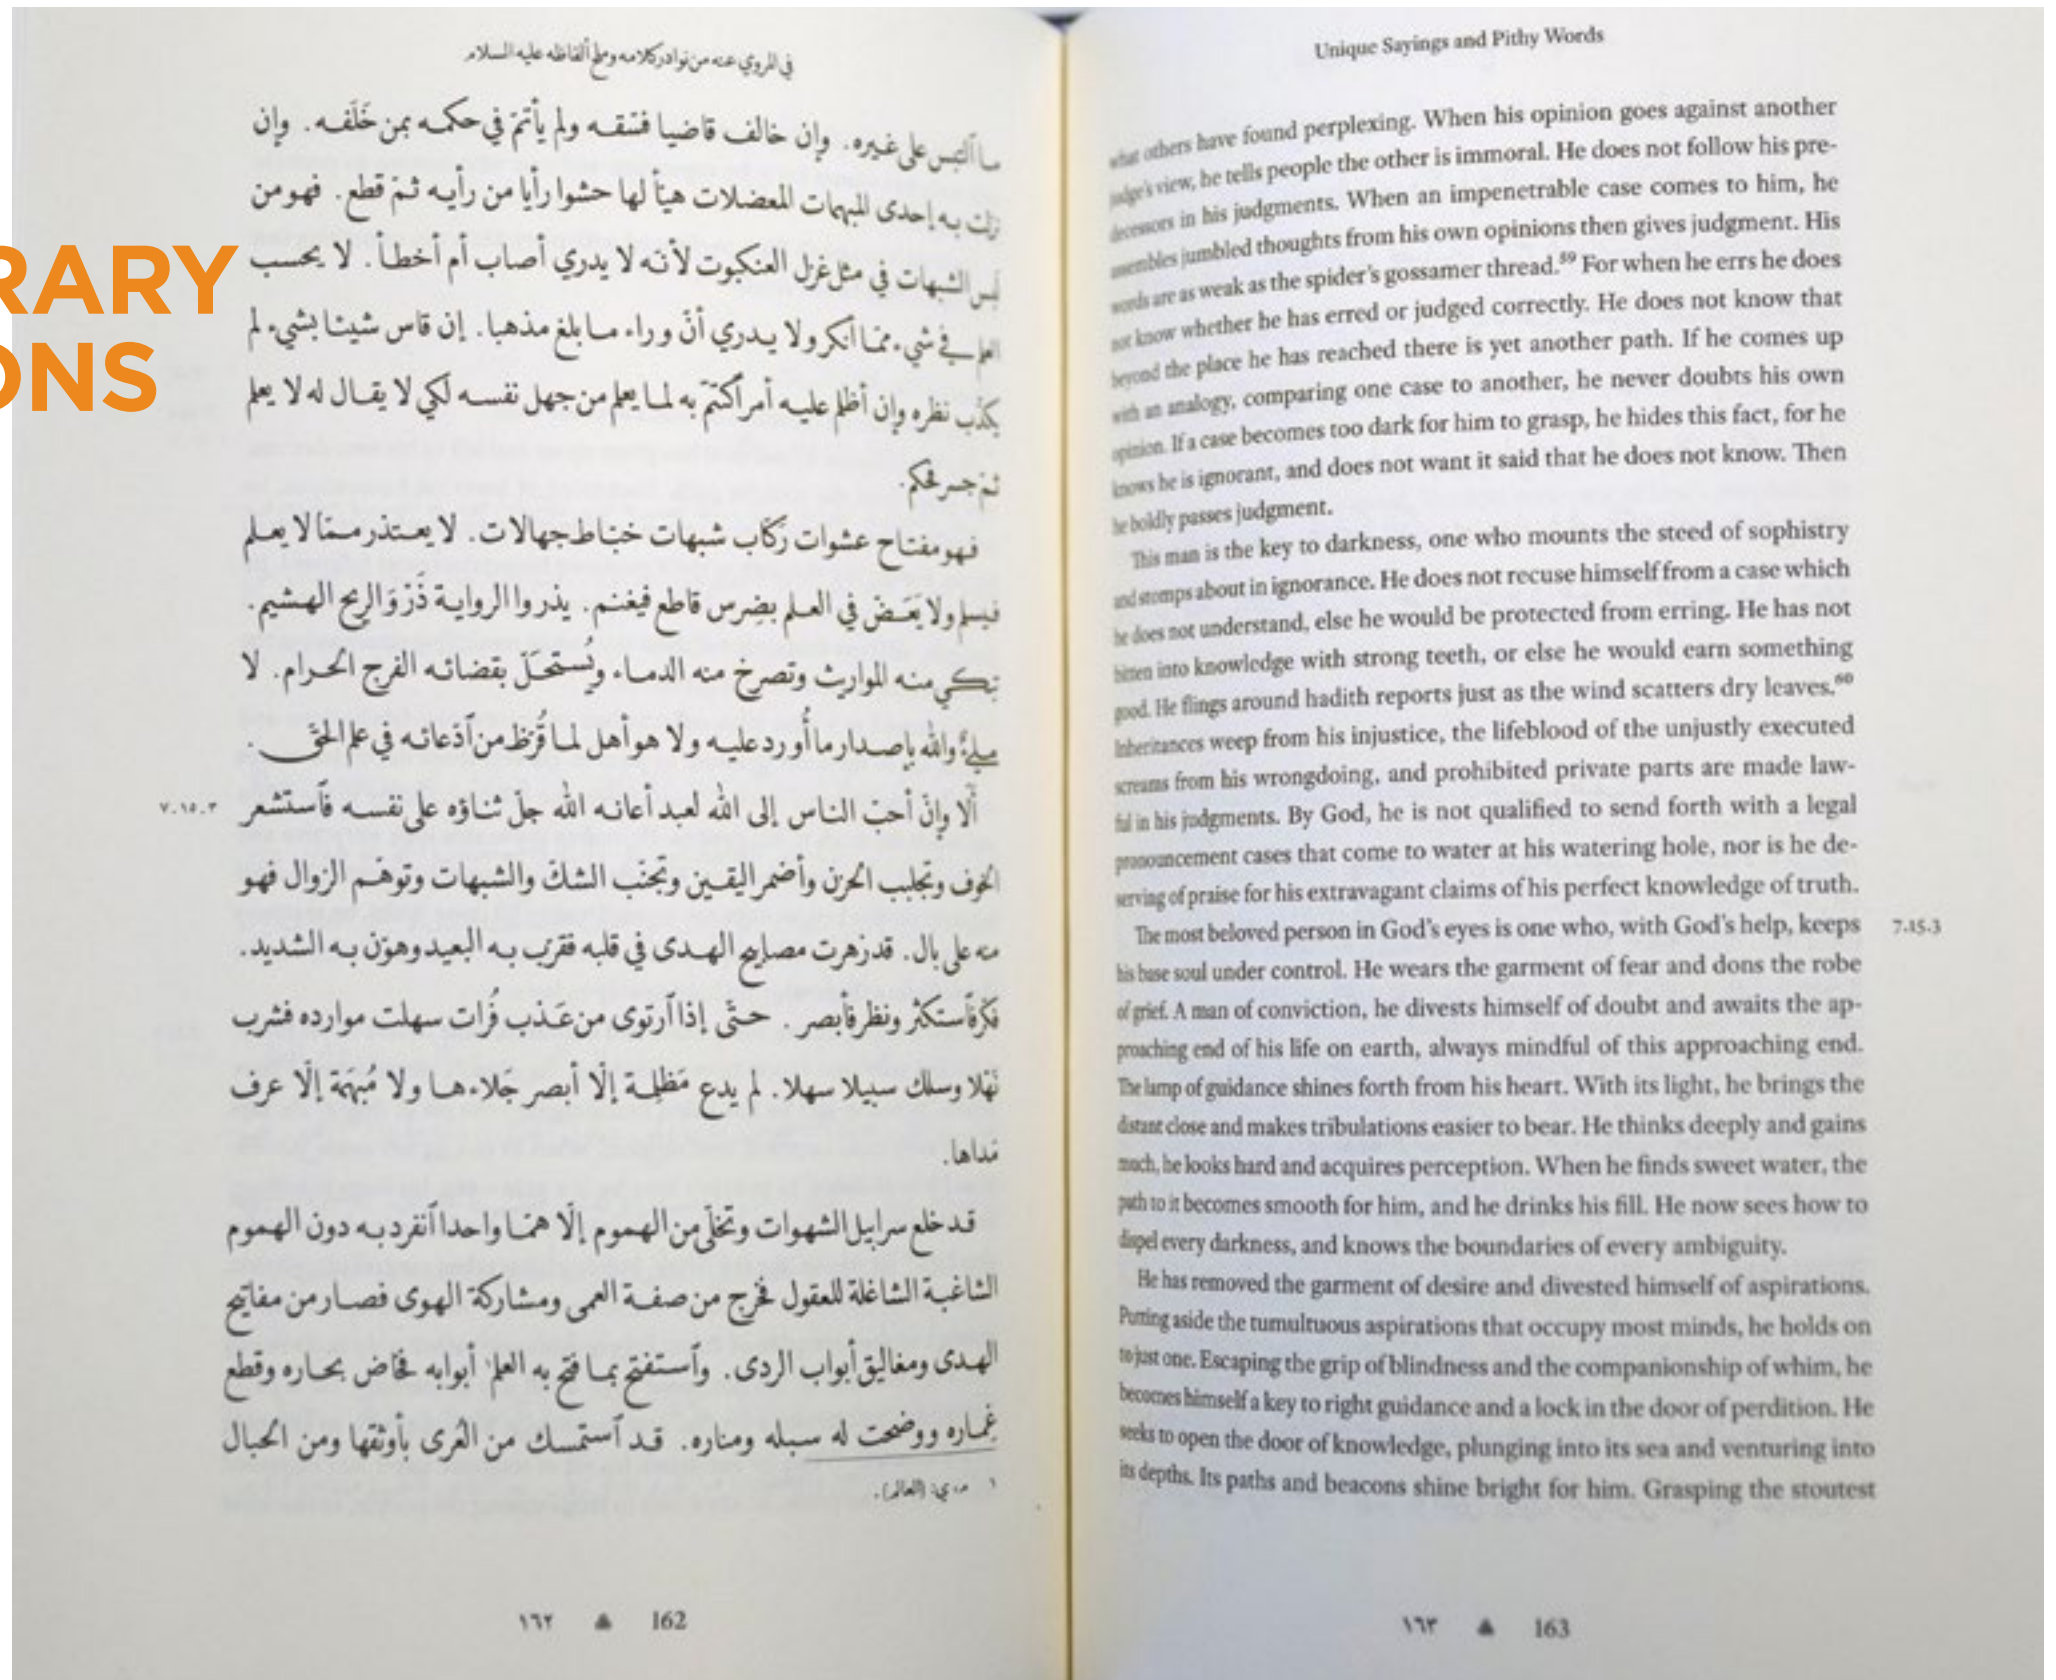 RARY
ONS
في المروي عنه من نوادر كلامه وملح ألفاظه عليه السلام
ما ٱلتبس على غيره. وإن خالف قاضيا فسّقه ولم يأتمّ في حكمه بمن خَلَفه. وإن
نزلت به إحدى المبهمات المعضلات هيّأ لها حشوا رأيا من رأيه ثمّ قطع. فهو من
لبس الشبهات في مثل غزل العنكبوت لأنّه لا يدري أصاب أم أخطأ. لا يحسب
العلم في شيء ممّا أنكر ولا يدري أنّ وراء ما بلغ مذهبا. إن قاس شيئا بشيء لم
يكذّب نظره وإن أظلم عليه أمر ٱكتتم به لما يعلم من جهل نفسه لكي لا يقال له لا يعلم
ثمّ جسر فحكم.
فهو مفتاح عشوات ركّاب شبهات خبّاط جهالات. لا يعتذر ممّا لا يعلم
فيسلم ولا يَعَضّ في العلم بضِرس قاطع فيغنم. يذروا الرواية ذَرْوَ الريح الهشيم.
تبكي منه المواريث وتصرخ منه الدماء ويُستحَلّ بقضائه الفرج الحرام. لا
مليءٌ والله بإصدار ما أُورد عليه ولا هو أهل لما قُرّظ من ٱدّعائه في علم الحقّ.
ألا وإنّ أحبّ الناس إلى الله لعبد أعانه الله جلّ ثناؤه على نفسه فٱستشعر
٧.١٥.٣
الخوف وتجلبب الحزن وأضمر اليقين وتجنّب الشكّ والشبهات وتوهّم الزوال فهو
منه على بال. قد زهرت مصابيح الهدى في قلبه فقرّب به البعيد وهوّن به الشديد.
فكّر فٱستكثر ونظر فأبصر. حتّى إذا ٱرتوى من عَذب فُرات سهلت موارده فشرب
نَهَلا وسلك سبيلا سهلا. لم يدع مَظلِمة إلّا أبصر جَلاءها ولا مُبهَمة إلّا عرف
مَداها.
قد خلع سرابيل الشهوات وتخلّى من الهموم إلّا همّا واحدا ٱنفرد به دون الهموم
الشاغبة الشاغلة للعقول فخرج من صفة العمى ومشاركة الهوى فصار من مفاتيح
الهدى ومغاليق أبواب الردى. وٱستفتح بما فتح به العلم١ أبوابه فخاض بحاره وقطع
غِماره ووضحت له سبله ومناره. قد ٱستمسك من العُرى بأوثقها ومن الحبال
١ م، ي: (العالم).
١٦٢ ▲ 162
Unique Sayings and Pithy Words
what others have found perplexing. When his opinion goes against another
judge's view, he tells people the other is immoral. He does not follow his pre-
decessors in his judgments. When an impenetrable case comes to him, he
assembles jumbled thoughts from his own opinions then gives judgment. His
words are as weak as the spider's gossamer thread.⁵⁹ For when he errs he does
not know whether he has erred or judged correctly. He does not know that
beyond the place he has reached there is yet another path. If he comes up
with an analogy, comparing one case to another, he never doubts his own
opinion. If a case becomes too dark for him to grasp, he hides this fact, for he
knows he is ignorant, and does not want it said that he does not know. Then
he boldly passes judgment.
This man is the key to darkness, one who mounts the steed of sophistry
and stomps about in ignorance. He does not recuse himself from a case which
he does not understand, else he would be protected from erring. He has not
bitten into knowledge with strong teeth, or else he would earn something
good. He flings around hadith reports just as the wind scatters dry leaves.⁶⁰
Inheritances weep from his injustice, the lifeblood of the unjustly executed
screams from his wrongdoing, and prohibited private parts are made law-
ful in his judgments. By God, he is not qualified to send forth with a legal
pronouncement cases that come to water at his watering hole, nor is he de-
serving of praise for his extravagant claims of his perfect knowledge of truth.
The most beloved person in God's eyes is one who, with God's help, keeps
7.15.3
his base soul under control. He wears the garment of fear and dons the robe
of grief. A man of conviction, he divests himself of doubt and awaits the ap-
proaching end of his life on earth, always mindful of this approaching end.
The lamp of guidance shines forth from his heart. With its light, he brings the
distant close and makes tribulations easier to bear. He thinks deeply and gains
much, he looks hard and acquires perception. When he finds sweet water, the
path to it becomes smooth for him, and he drinks his fill. He now sees how to
dispel every darkness, and knows the boundaries of every ambiguity.
He has removed the garment of desire and divested himself of aspirations.
Putting aside the tumultuous aspirations that occupy most minds, he holds on
to just one. Escaping the grip of blindness and the companionship of whim, he
becomes himself a key to right guidance and a lock in the door of perdition. He
seeks to open the door of knowledge, plunging into its sea and venturing into
its depths. Its paths and beacons shine bright for him. Grasping the stoutest
١٦٣ ▲ 163